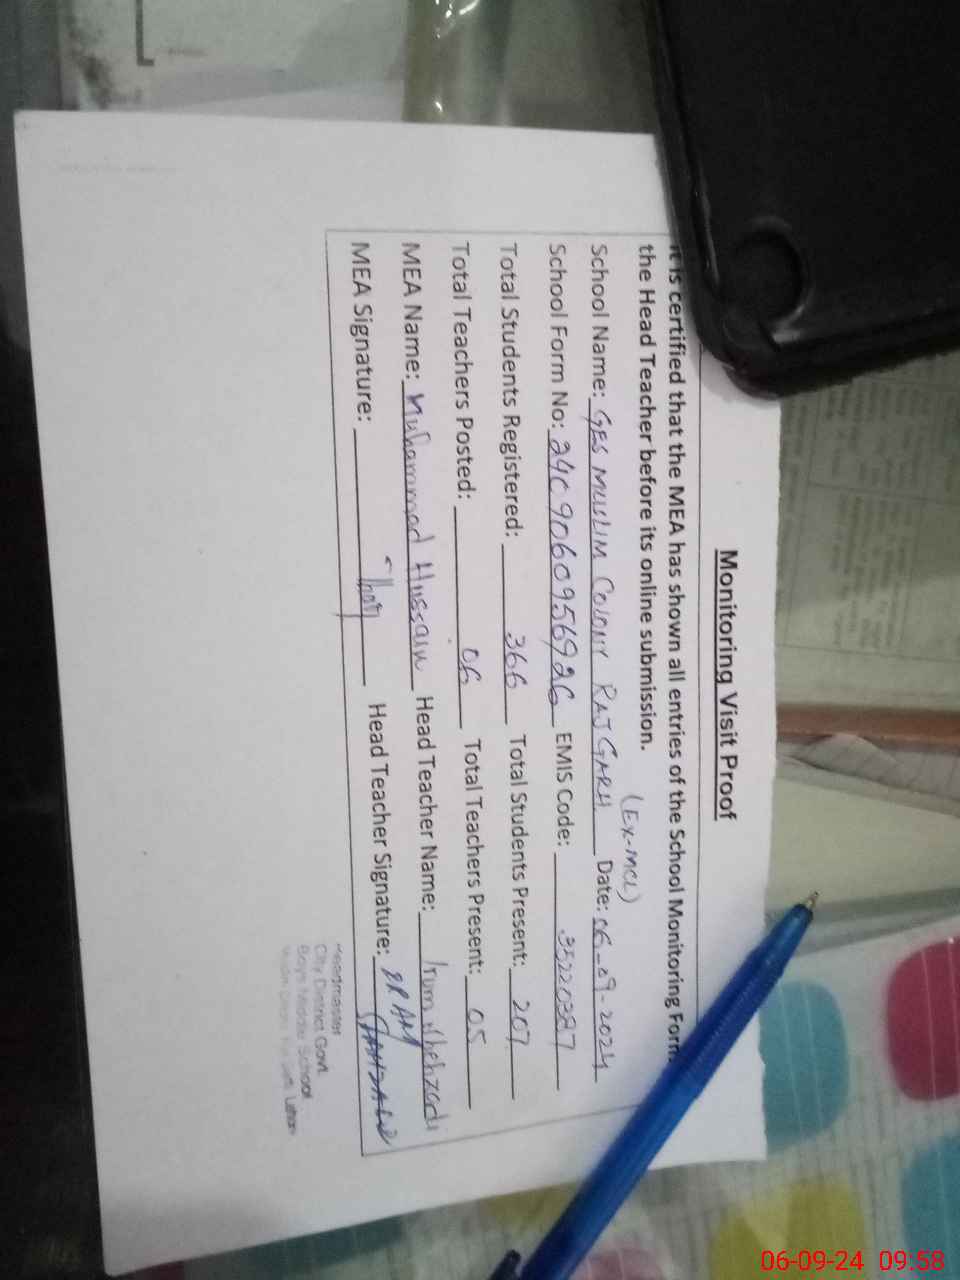 Monitoring Visit Proof
It is certified that the MEA has shown all entries of the School Monitoring Form
the Head Teacher before its online submission.
(EX-MCL)
School Name: GES MUSLIM COLONY RAJ GARH Date: 06-09-2024
School Form No: 2409060956926 EMIS Code: 35220327
Total Students Registered: 366 Total Students Present: 207
Total Teachers Posted: 06 Total Teachers Present: 05
MEA Name: Muhammad Hussain Head Teacher Name: Irum Shehzadi
MEA Signature: Head Teacher Signature:
Headmaster
City District Govt.
Boys Middle School
06-09-24 09:58